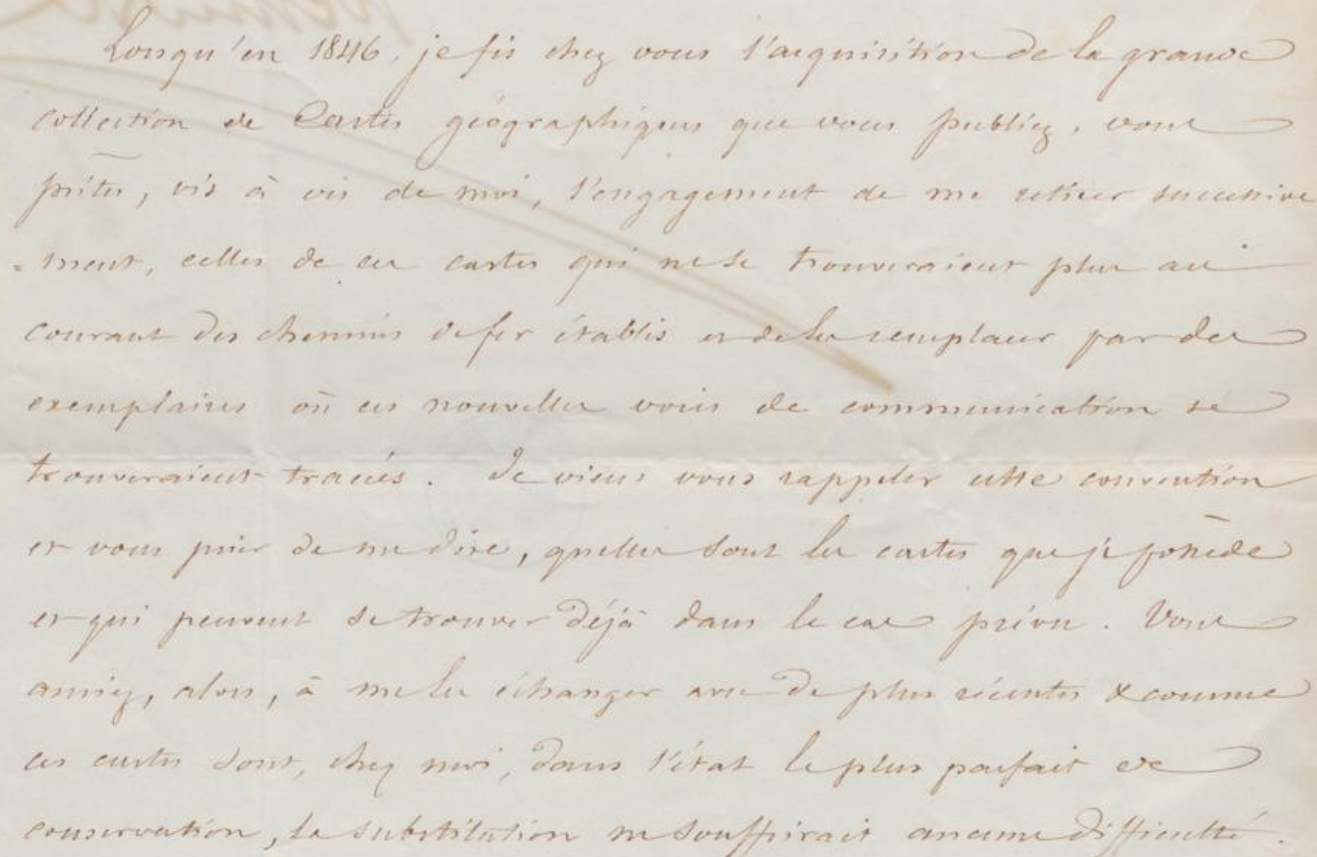 Lorsqu'en 1846, je fis chez vous l'acquisition de la grande
collection de Cartes géographiques que vous publiez, vous
prîtes, vis à vis de moi, l'engagement de me retirer successive
=ment, celles de ces cartes qui ne se trouveraient plus au
courant des chemins de fer établis et de les remplacer par des
exemplaires où ces nouvelles voies de communication se
trouveraient tracées. Je viens vous rappeler cette convention
et vous prier de me dire, quelles sont les cartes que je possède
et qui peuvent se trouver déjà dans le cas prévu. Vous
auriez, alors, à me les échanger avec de plus récentes & comme
ces cartes sont, chez moi, dans l'état le plus parfait de
conservation, la substitution ne souffrirait aucune difficulté.